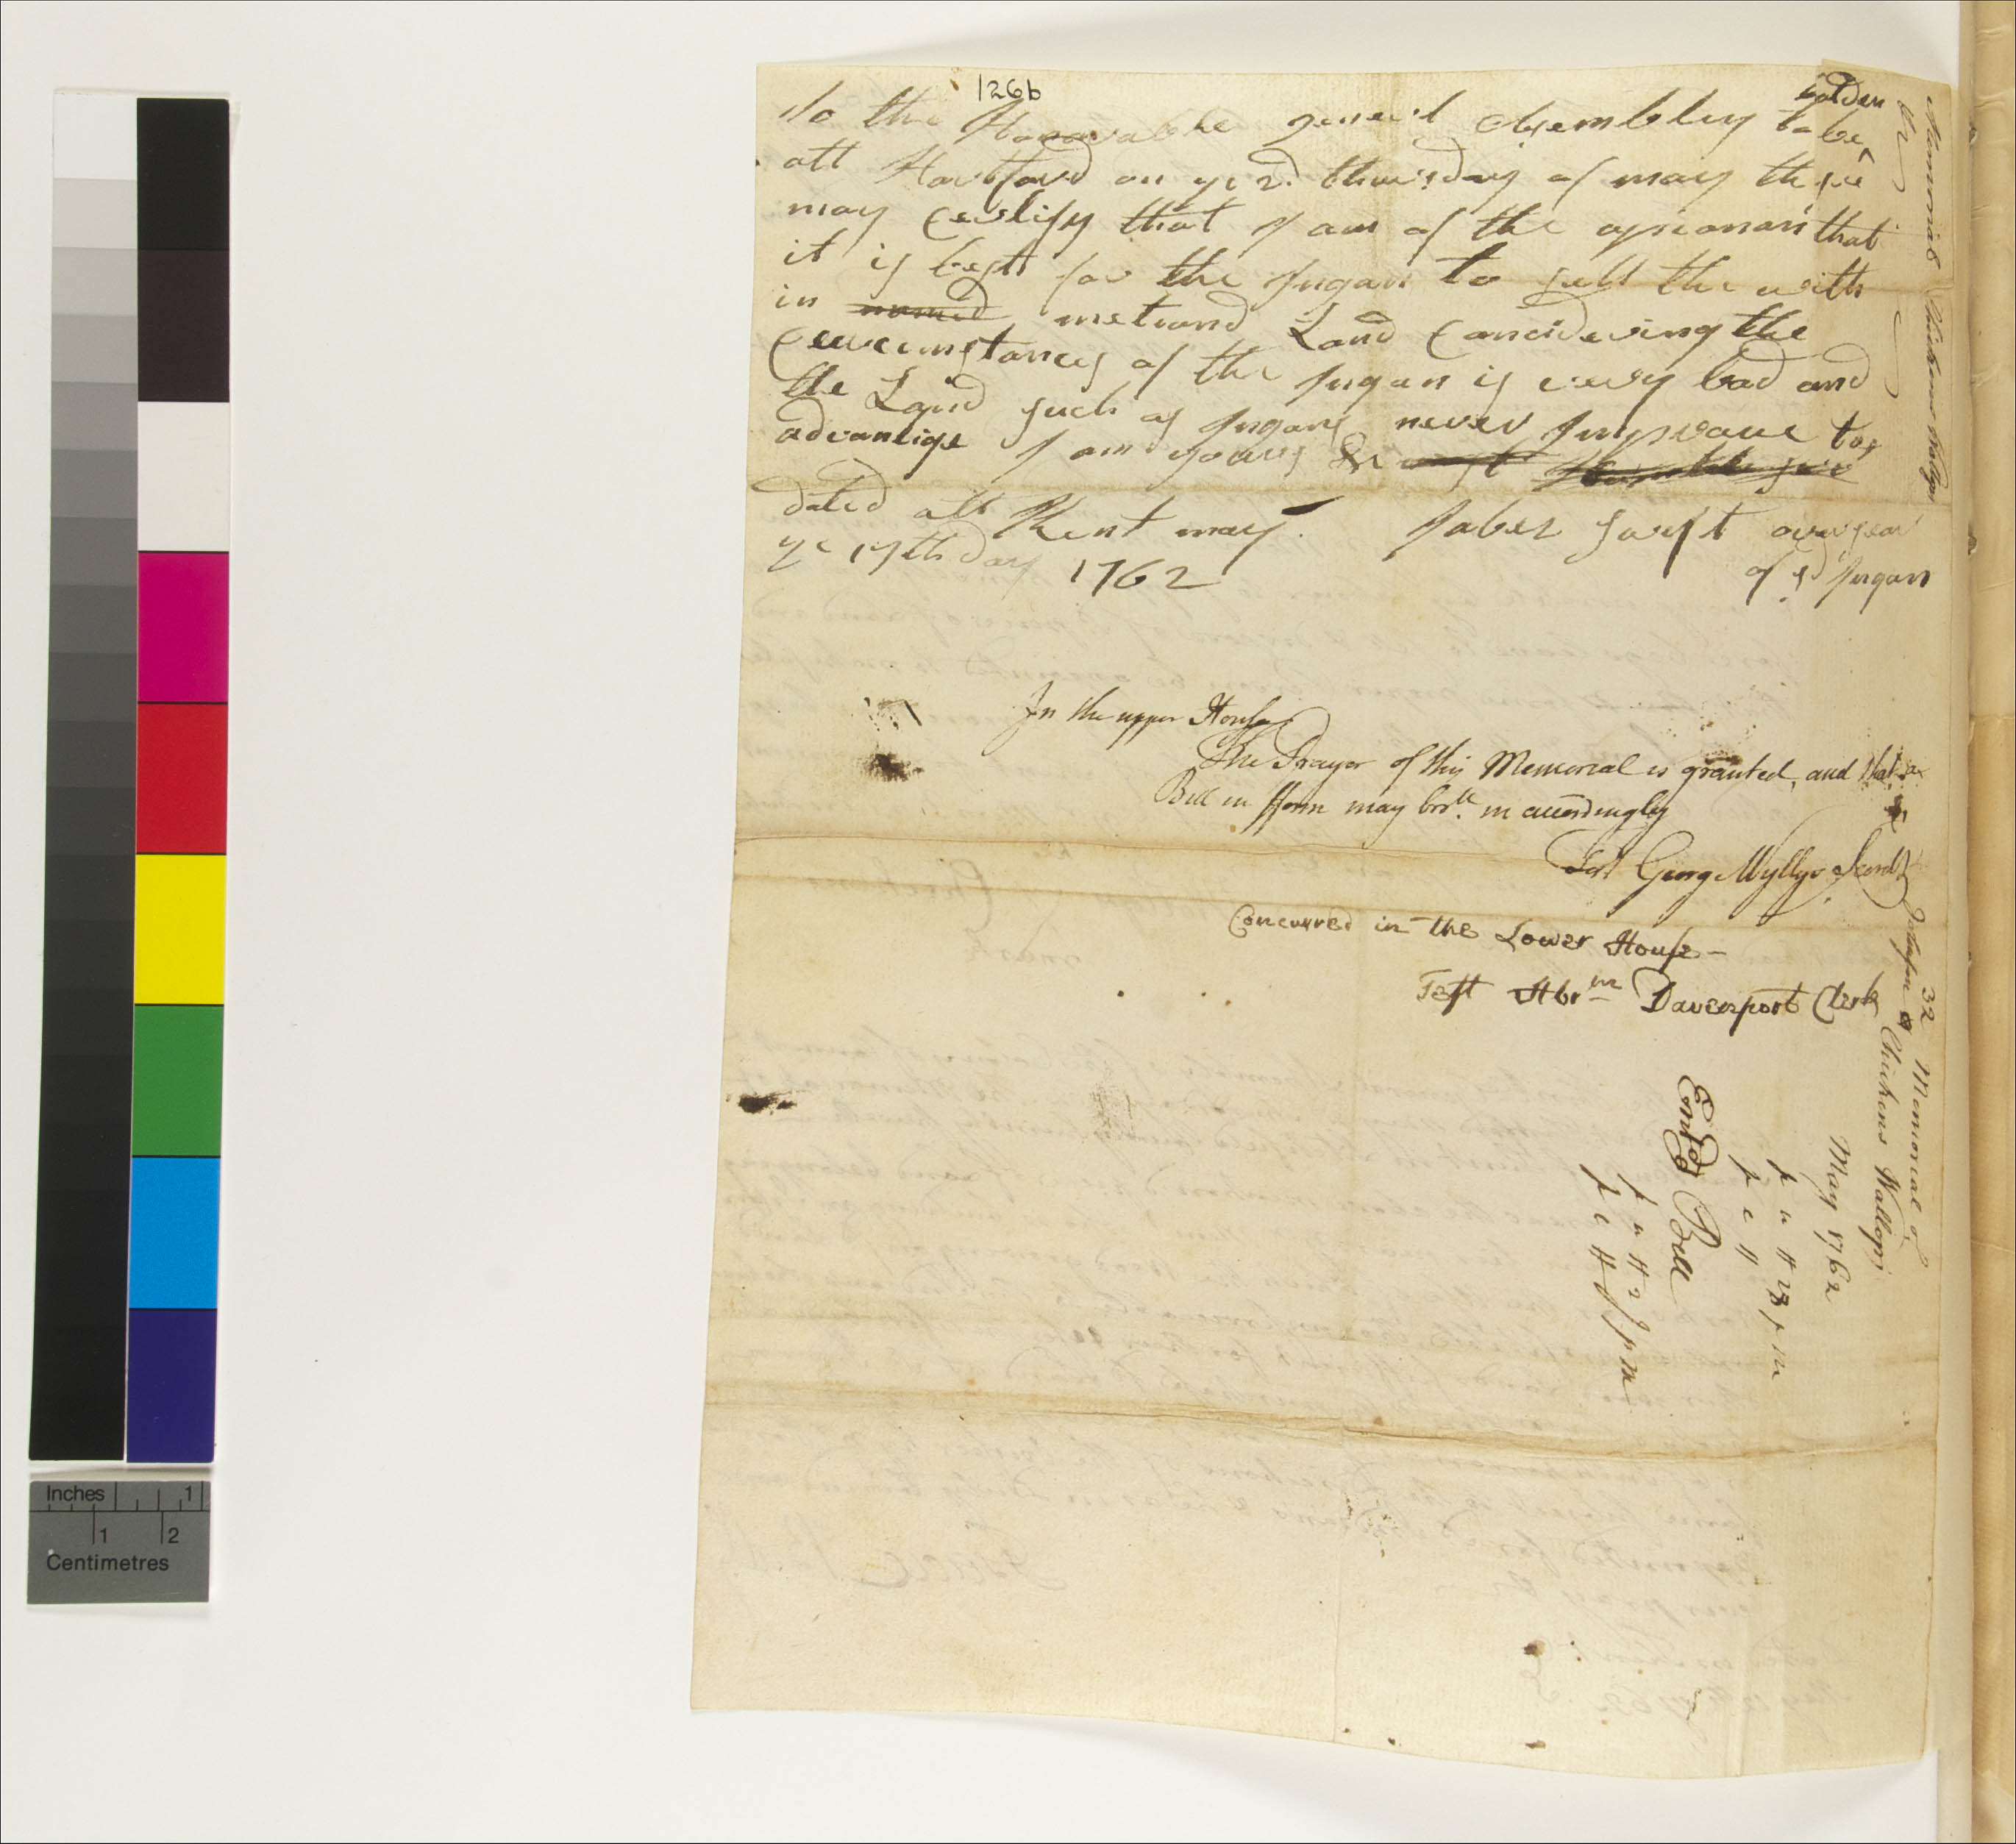 126b
To the Honorable generl assembley to be holden
att Hartford on ye 2d thursday of may these
may certify that I am of the opieonan that
it is best for the Ingan to sell the with
in named metiand Land Concidering the
Cercumstances of the Ingan is very bad and
the Land such as Ingans never Improve to
advantige I am yours &c
dated att Kent may Jabez swift oversear
ye 17th day 1762 of sd Ingan
In the upper House
The Prayer of this Memorial is granted, and that a
Bill in fform may brot. in accordingly
Test George Wyllys Secret
Concurred in the Lower House -
Test Abrm Davenport Clerk
32 Memorial of
Chickens Wallops
May 1762
p u H 28 p m
p c H
Entd
Bill
p u H
p c H p m
Memorial Chickens Wallops